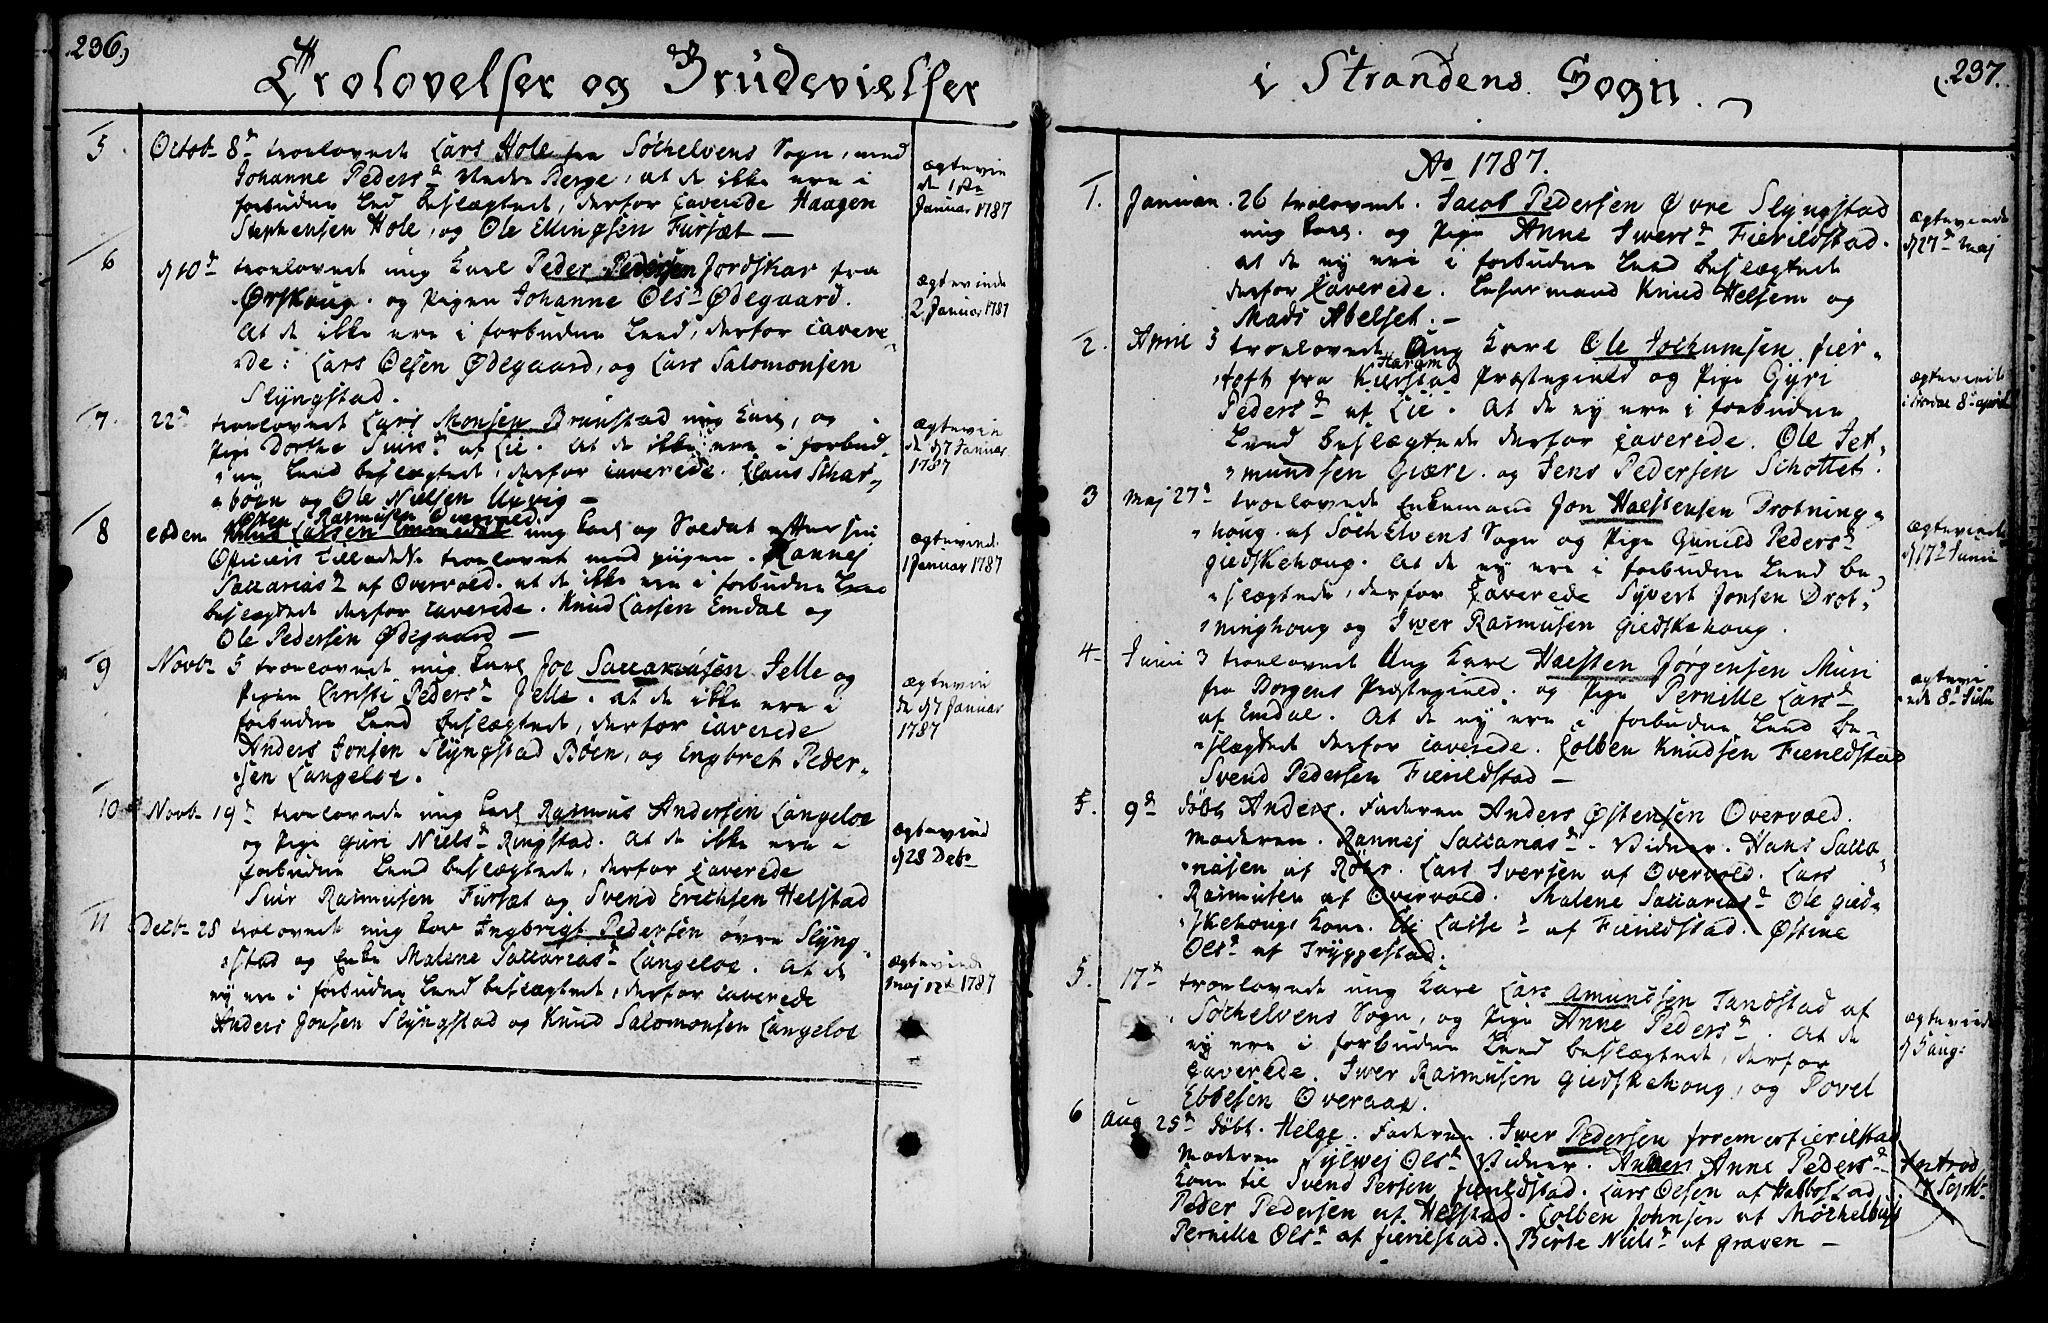 236)
Trolovelser og Brudevielser
5. Octob. 8d troelovede Lars Hole fra Søchelvens Sogn, med
Johanne Pedersd Nedre Berge, at de ikke ere i
forbudne Leed beslægtede, derfor caverede Haagen
Stephensen Hole, og Ole Ellingsen Fursæt —
ægtevie
de 1ste
Januar 1787
6 d 10d troelovede ung Karl Peder Pedersen Jordskar fra
Ørskoug. og Pigen Johanne Olsd Ødegaard.
At de ikke ere i forbudne Leed, derfor cavere-
-de: Lars Olsen Ødegaard, og Lars Salomonsen
Slyngstad.
ægteviede
2. Januar 1787
7. 22d troelovede Lars Monsen Brunstad ung Karl, og
Pige Dorthe Siursd af Lie. At de ikke ere i forbud-
-ne Leed beslægtede, derfor caverede. Claus Schar-
-bøen og Ole Nielsen Urvig —
ægtevie
de d 7 Januar
1787
Østen Rasmusen Overvold
8 eodem Knud Lassen Emmedal ung Karl og Soldat efter sin
Officiers Tilladelse troelovet med pigen. Rannej
Saccariasd af Overvold. at de ikke ere i forbudne Leed
beslægtede derfor caverede. Knud Lassen Emdal og
Ole Pedersen Ødegaard —
ægteviede
1 Januar 1787
9 Novb. 5 troelovede ung Karl Joe Saccariasen Jelle og
Pigen Christi Pedersd Jelle. at de ikke ere i
forbudne Leed beslægtede, derfor caverede
Anders Jonsen Slyngstad Bøen, og Engbret Peder-
-sen Langeloe.
ægtevie
de d 7 Januar
1787
10 Novb. 19d troelovede ung Karl Rasmus Andersen Langeloe
og Pige Guri Nielsd Ringstad. At de ikke ere i
forbudne Leed beslægtede, derfor caverede
Siur Rasmusen Fursæt og Svend Erichsen Helstad
ægteviede
d 28 Debr
11 Decb. 28 trolovede ung Kar Ingbrigt Pedersen øvre Slyng-
-stad og Enke Malene Saccariasd Langeloe. At de
ej ere i forbudne Leed beslægtede, derfor caverede
Anders Jonsen Slyngstad og Knud Salomonsen Langeloe
ægteviede
maj 1787
i Strandens Sogn.
237.
Ao 1787.
1. Januar. 26 trolovede. Jacob Pedersen Øvre Slyngstad
ung Karl. og Pige Anne Iversd Fierildstad.
at de ej ere i forbudne Leed beslægtede
derfor Caverede. Lehnsmand Knud Helsem og
Mads Abelset. —
ægteviede
d 27d Maj
2. April 3 troelovede Ung Karl Ole Jochumsen. fier-
-toft fra Kierstad Haram Præstegield og Pige Gyri
Pedersd af Lie. At de ej ere i forbudne
Leed beslægtede derfor caverede. Ole Jet-
-mundsen Giære. og Jens Pedersen Schottet.
ægteviede
8d april
3 Maj 27d troelovede Enkemand Jon Halstensen Drotning-
-houg. af Søchelvens Sogn og Pige Gunild Pedersd
Giedskehoug. At de ej ere i forbudne Leed be-
-slægtede, derfor Caverede Syvert Jonsen Drot-
-ninghoug og Iwer Rasmusen Giedskehoug.
ægteviede
d 17d Junii
4. Junii 3 troelovede Ung Karl Halsten Jørgensen Muri
fra Borgens Præstegield. og Pige Pernille Larsd
af Emdal. At de ej ere i forbudne Leed be-
-slægtede derfor caverede. Colben Knudsen Fierildstad
Svend Pedersen Fierildstad —
ægtevi
ede 8d Julii
5. 9d døbt Anders. Faderen Anders Østensen Overvold.
Moderen. Rannej Saccariasd. Vidner. Hans Sacca-
-riasen af Røer. Lars Iversen af Overvold. Lars
Rasmusen af Overvold. Malene Saccariasd Ole Gied-
-skehougs Kone. Eli Lassed af Fierildstad. Østine
Olsd af Tryggestad.
5. 17d troelovede ung Karl Lars Amundsen Tandstad af
Søchelvens Sogn, og Pige Anne Pedersd. At de
ej ere i forbudne Leed beslægtede, derfor
Caverede. Iwer Rasmusen Giedskehoug, og Povel
Ebbesen Overaae.
ægteviede
d 5 aug:
6 Aug 25d døbt. Helge. Faderen. Iwer Pedersen fierilstad
Moderen Sylwej Olsd Vidner. Anne Pedersd
Kone til Svend Persen fierildstad. Lars Olsen af Habbostad
Peder Pedersen af Helstad. Colben Johnsen af
Pernille Olsd af fierilstad. Birte Nielsd af Graven —
Introd
Septr